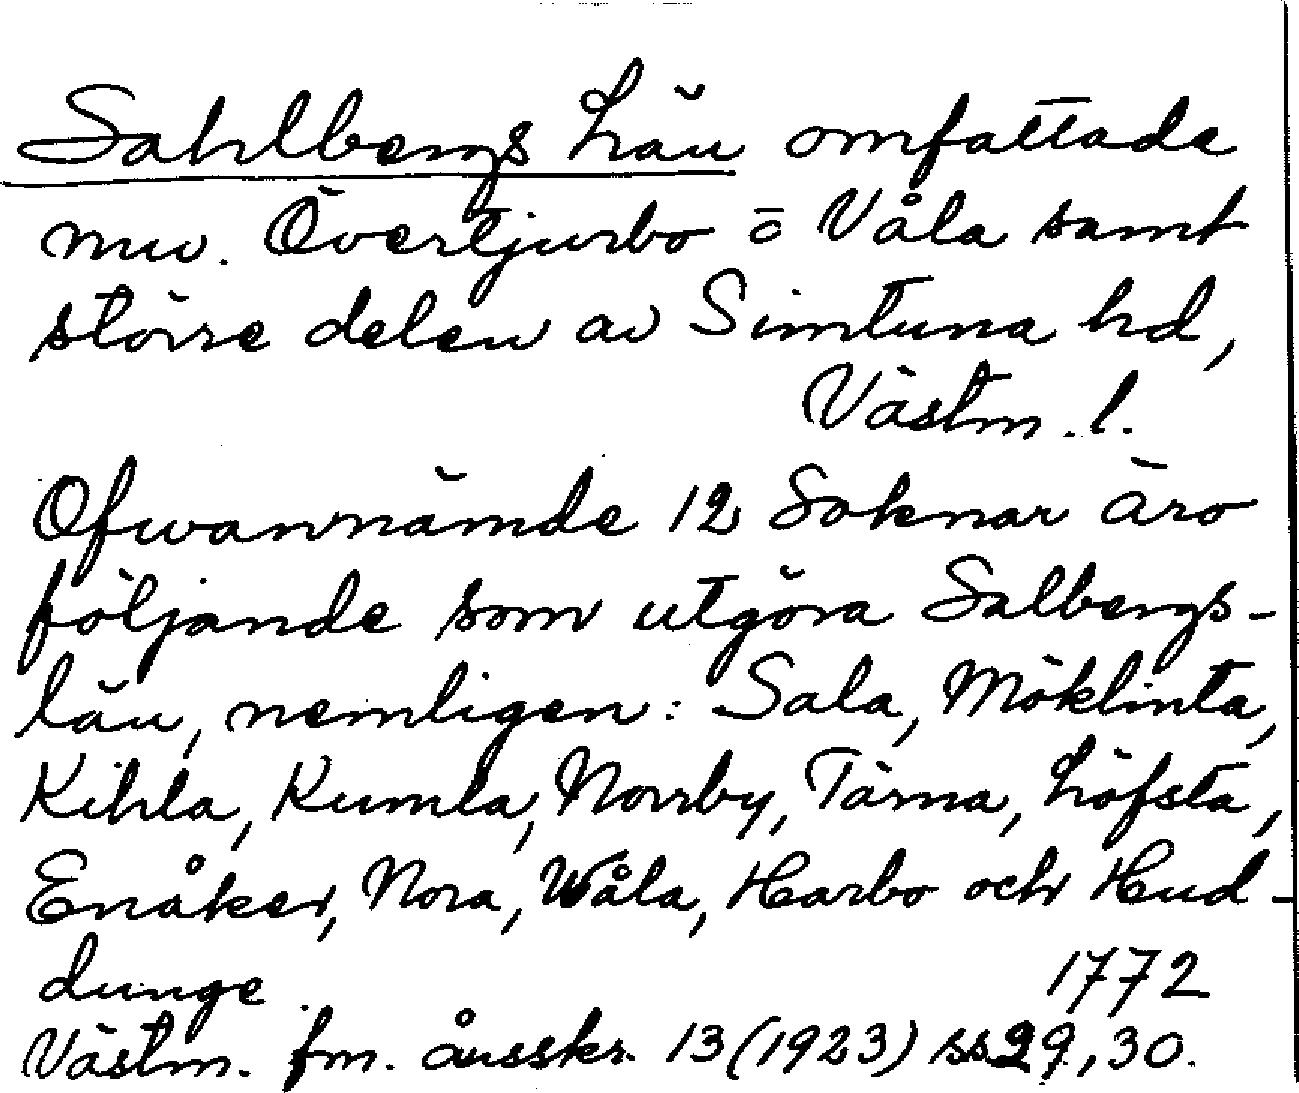 Sahlbergs Län omfattade
nuv. Övertjurbo o Våla samt
större delen av Simtuna hd,
Västm. l.
Ofwannämde 12 Soknar äro
följande som utgöra Salbergs-
län, nemligen: Sala, Möklinta,
Kihla, Kumla, Norrby, Tärna, Löfsta,
Enåker, Nora, Wåla, Harbo och Hud-
dunge. 1772
Västm. fm. årsskr. 13 (1923) ss 29, 30.